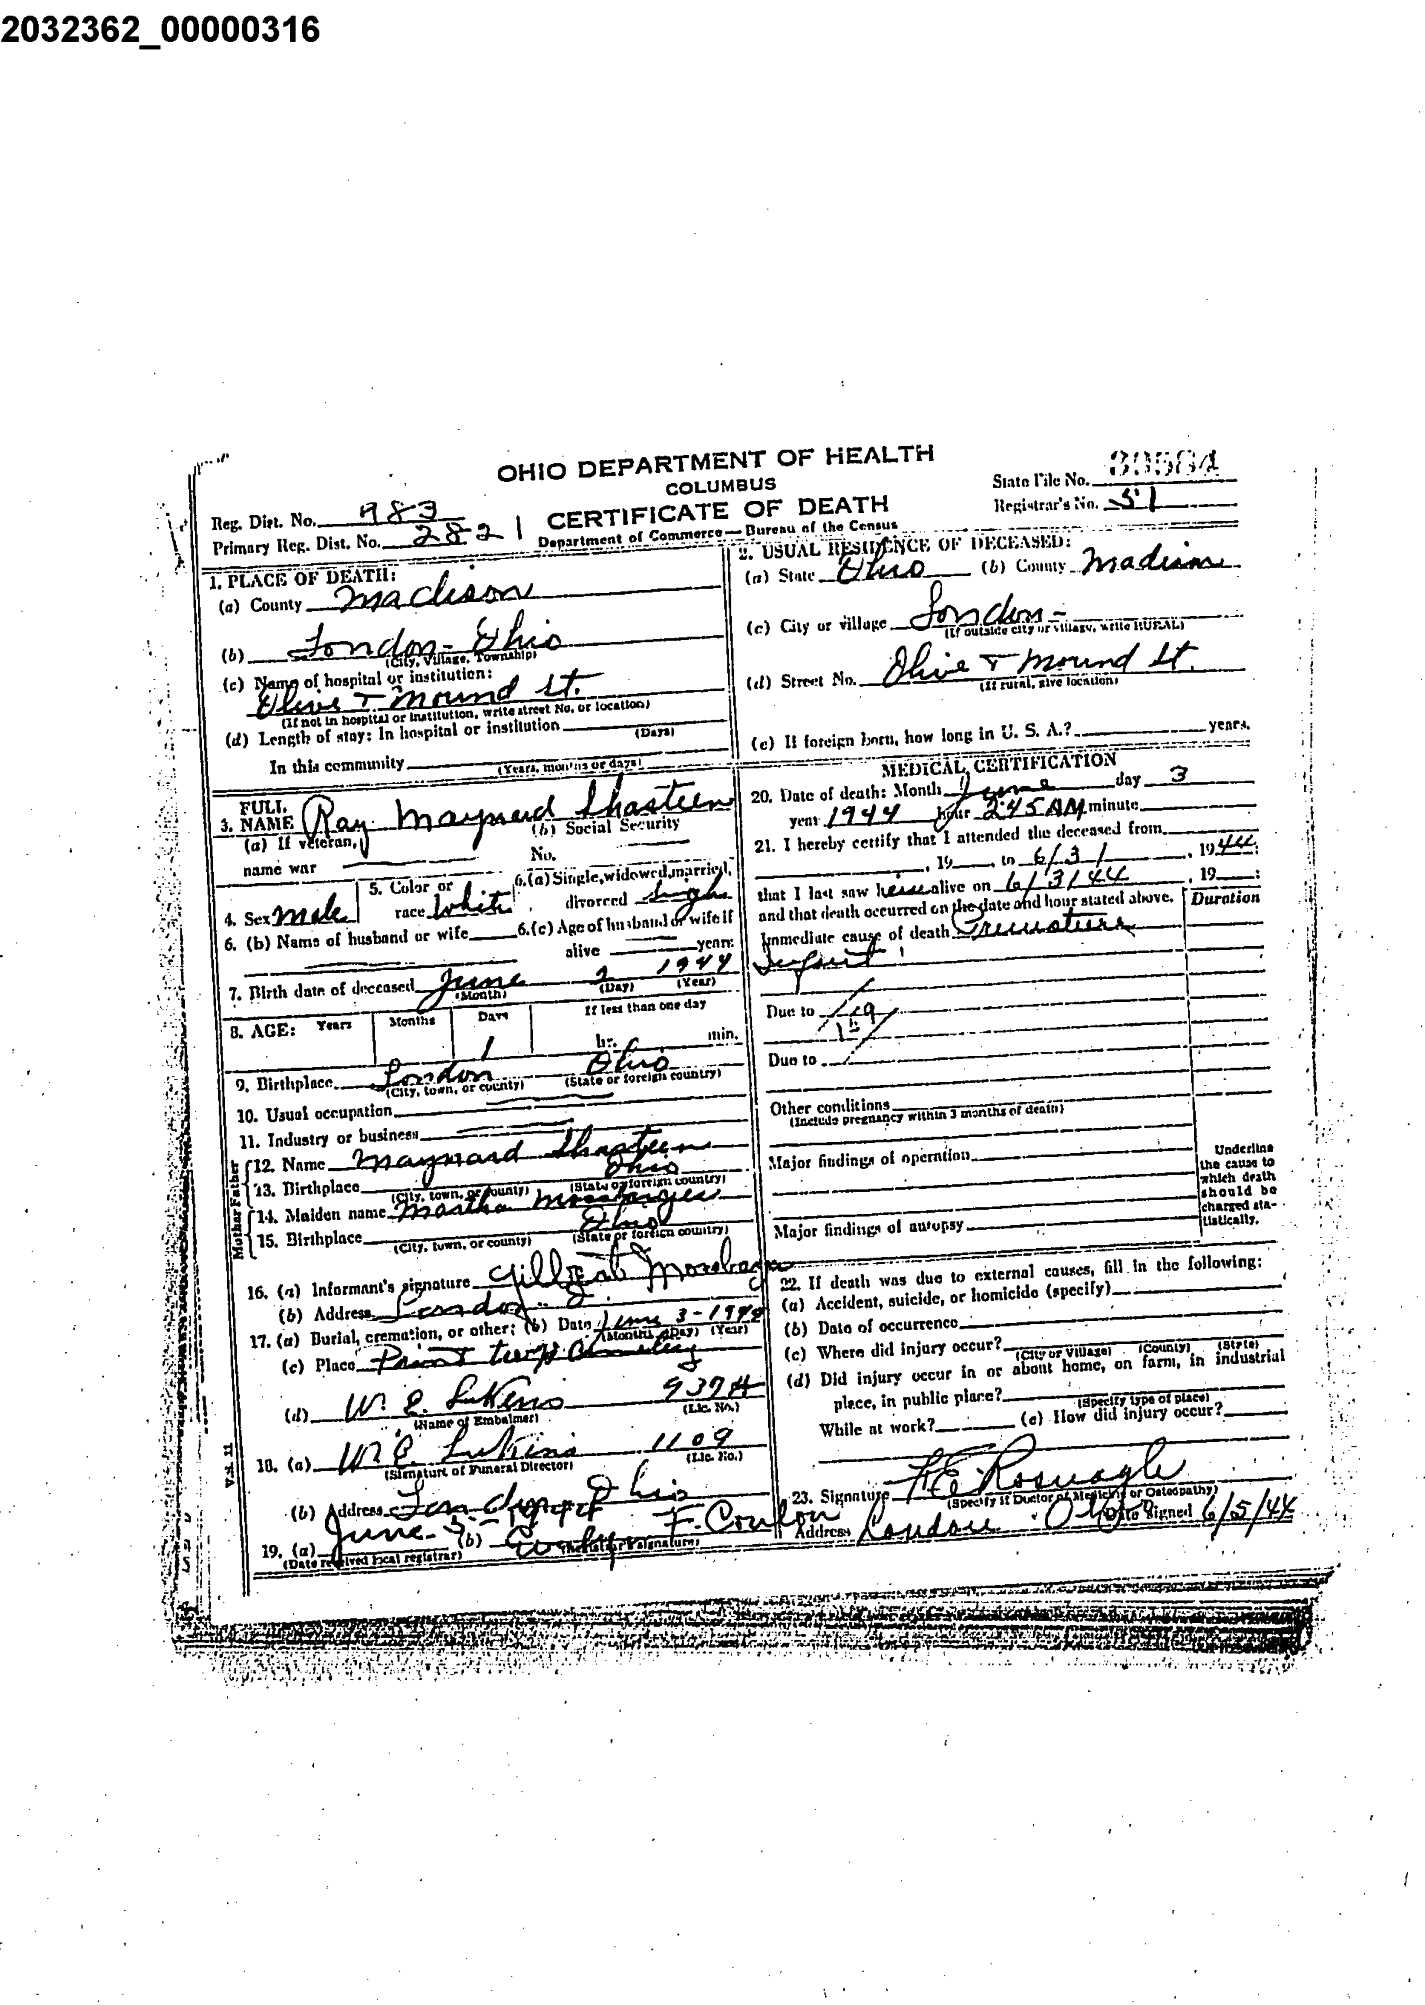 2032362_00000316
OHIO DEPARTMENT OF HEALTH
COLUMBUS
CERTIFICATE OF DEATH
Department of Commerce — Bureau of the Census
Reg. Dist. No. 983
Primary Reg. Dist. No. 2821
State File No.
Registrar's No. 51
1. PLACE OF DEATH:
(a) County Madison
(b) London - Ohio
(City, Village, Township)
(c) Name of hospital or institution:
Olive + Mound St.
(If not in hospital or institution, write street No. or location)
(d) Length of stay: In hospital or institution
(Days)
In this community
(Years, months or days)
2. USUAL RESIDENCE OF DECEASED:
(a) State Ohio (b) County Madison
(c) City or village London -
(If outside city or village, write RURAL)
(d) Street No. Olive + Mound St.
(If rural, give location)
(e) If foreign born, how long in U. S. A.? years.
3. FULL NAME Ray Maynard Shasteen
(a) If veteran, name war
(b) Social Security No.
4. Sex Male
5. Color or race White
6. (a) Single, widowed, married, divorced Single
6. (b) Name of husband or wife
6. (c) Age of husband or wife if alive years
7. Birth date of deceased June 2 1944
(Month) (Day) (Year)
8. AGE: Years Months Days If less than one day
1 hr. min.
9. Birthplace London Ohio
(City, town, or county) (State or foreign country)
10. Usual occupation
11. Industry or business
Father
12. Name Maynard Shasteen
13. Birthplace Ohio
(City, town, or county) (State or foreign country)
Mother
14. Maiden name Martha
15. Birthplace Ohio
(City, town, or county) (State or foreign country)
16. (a) Informant's signature
(b) Address London
17. (a) Burial, cremation, or other: (b) Date June 3 - 1944
(Month) (Day) (Year)
(c) Place Paint twp Cemetery
(d) W. E. Lukens 937A
(Name of Embalmer) (Lic. No.)
18. (a) W E. Lukens 1109
(Signature of Funeral Director) (Lic. No.)
(b) Address London Ohio
19. (a) June - 5 - 1944 (b) Evelyn F. Coulon
(Date received local registrar) (Registrar's signature)
V.S. 11
MEDICAL CERTIFICATION
20. Date of death: Month June day 3
year 1944 hour 2:45 AM minute
21. I hereby certify that I attended the deceased from
, 19 to 6/3/ , 1944;
that I last saw alive on 6/3/44 , 19 ;
and that death occurred on the date and hour stated above.
Duration
Immediate cause of death Premature
Infant
Due to
Due to
Other conditions
(Include pregnancy within 3 months of death)
Major findings of operation
Major findings of autopsy
Underline
the cause to
which death
should be
charged sta-
tistically.
22. If death was due to external causes, fill in the following:
(a) Accident, suicide, or homicide (specify)
(b) Date of occurrence
(c) Where did injury occur?
(City or Village) (County) (State)
(d) Did injury occur in or about home, on farm, in industrial
place, in public place?
(Specify type of place)
While at work? (e) How did injury occur?
23. Signature F E Rosnagle
(Specify if Doctor of Medicine or Osteopathy)
Address London O Date Signed 6/5/44